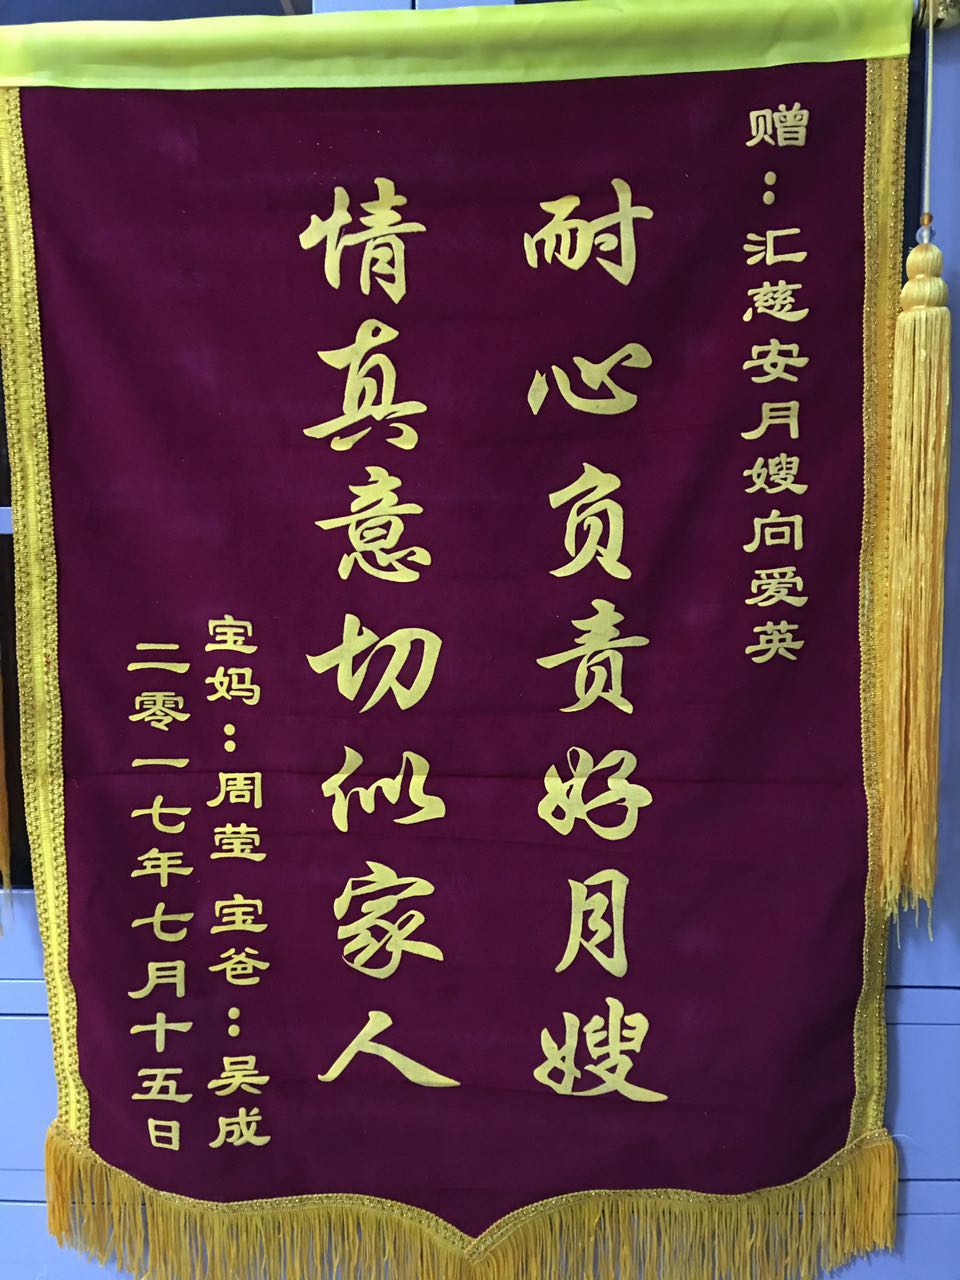 赠：汇慈安月嫂向爱英
耐心负责好月嫂
情真意切似家人
宝妈：周莹 宝爸：吴成
二零一七年七月十五日